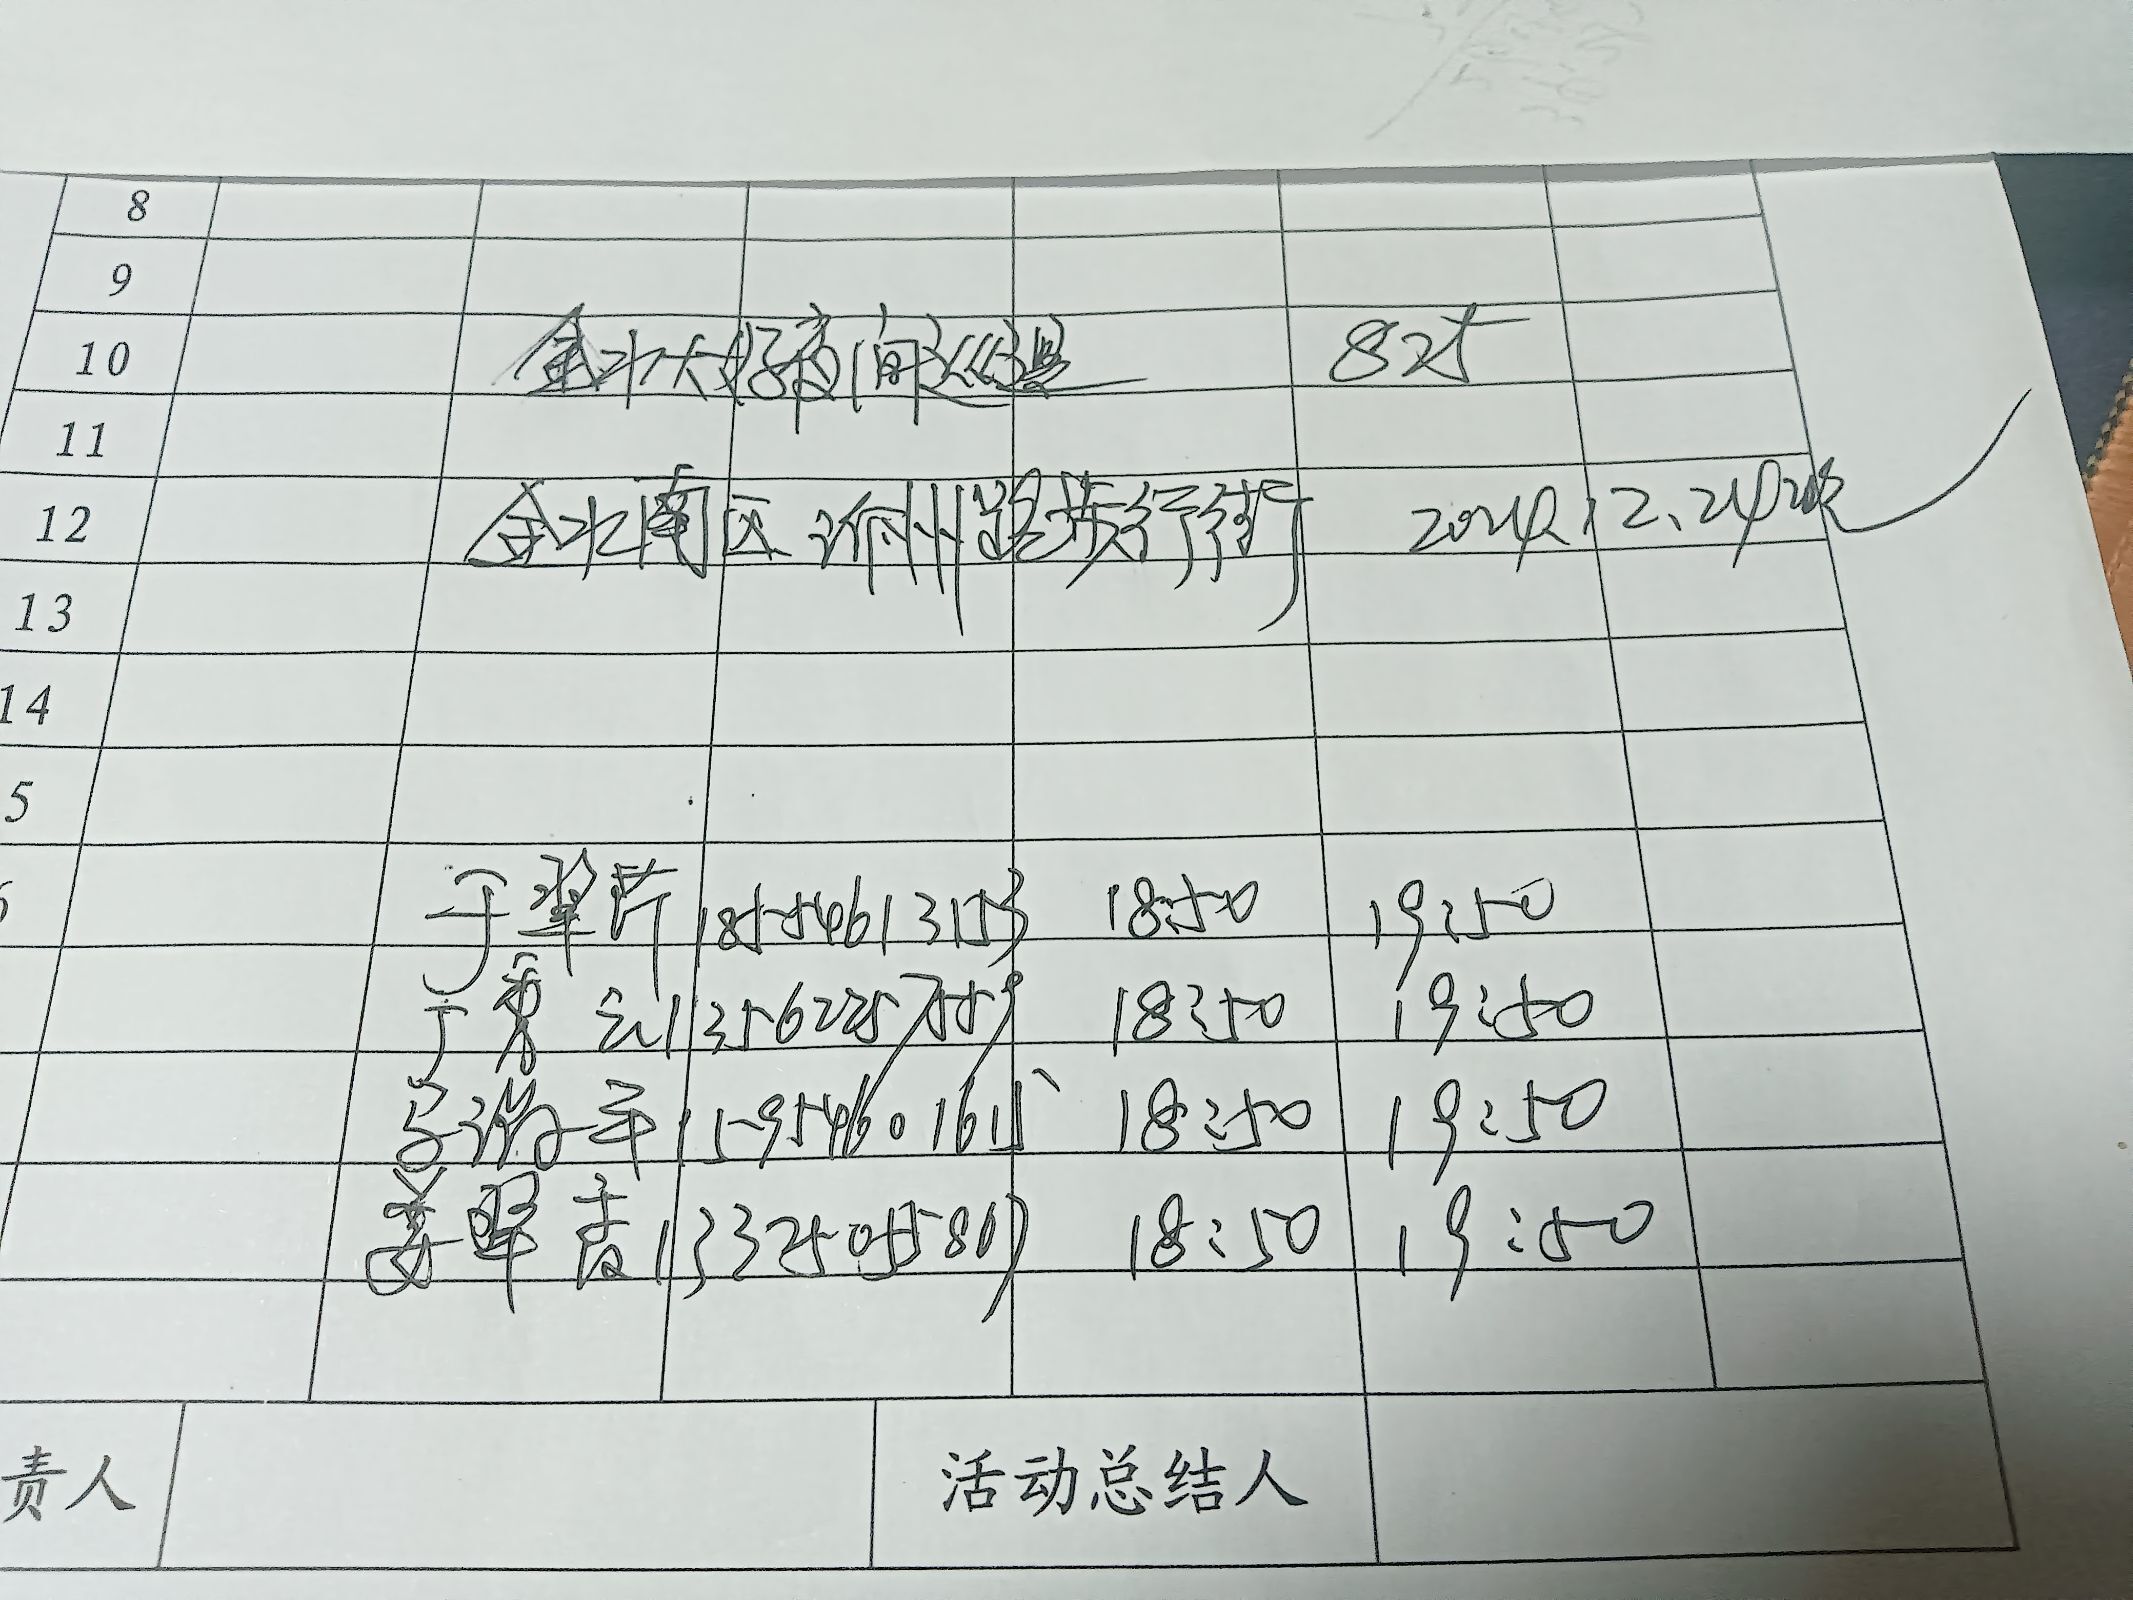 8
9
10 金水大好夜间巡逻 82次
11
12 金水南区 州路步行街 2024.12.24
13
14
5
于翠芹 18554613153 18:50 19:50
于秀云 13562257559 18:50 19:50
平 15954601615 18:50 19:50
姜翠香 13325055807 18:50 19:50
责人 活动总结人